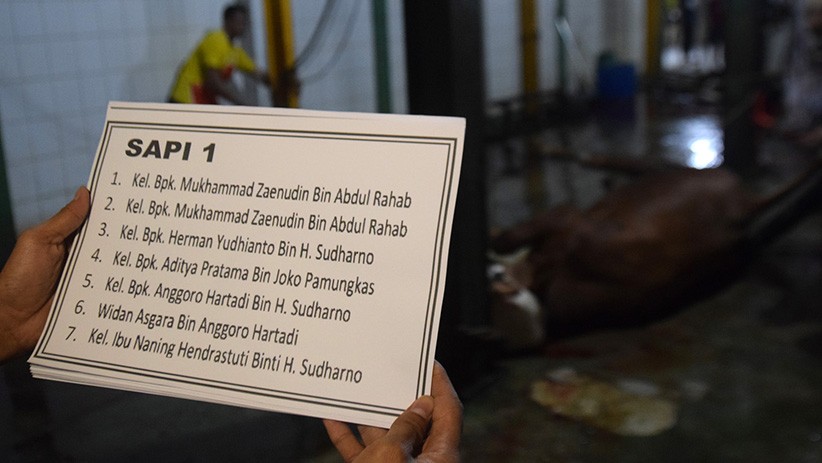 SAPI 1
1. Kel. Bpk. Mukhammad Zaenudin Bin Abdul Rahab
2. Kel. Bpk. Mukhammad Zaenudin Bin Abdul Rahab
3. Kel. Bpk. Herman Yudhianto Bin H. Sudharno
4. Kel. Bpk. Aditya Pratama Bin Joko Pamungkas
5. Kel. Bpk. Anggoro Hartadi Bin H. Sudharno
6. Widan Asgara Bin Anggoro Hartadi
7. Kel. Ibu Naning Hendrastuti Binti H. Sudharno